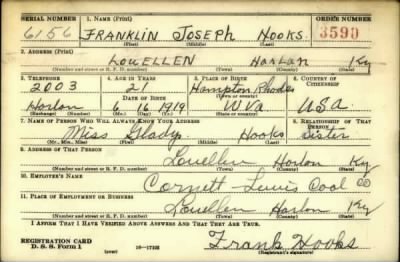 SERIAL NUMBER 1. NAME (Print) ORDER NUMBER
6156 FRANKLIN JOSEPH HOOKS 3590
(First) (Middle) (Last)
2. ADDRESS (Print)
LOUELLEN HARLAN Ky
(Number and street or R. F. D. number) (Town) (County) (State)
3. TELEPHONE 4. AGE IN YEARS 5. PLACE OF BIRTH 6. COUNTRY OF CITIZENSHIP
2003 21 Hampton Rhodes
DATE OF BIRTH
Harlan 6 16 1919 W Va U.S.A.
(Exchange) (Number) (Mo.) (Day) (Yr.) (State or country)
7. NAME OF PERSON WHO WILL ALWAYS KNOW YOUR ADDRESS 8. RELATIONSHIP OF THAT PERSON
Miss Gladys Hooks Sister
(Mr., Mrs., Miss) (First) (Middle) (Last)
9. ADDRESS OF THAT PERSON
Louellen Harlan Ky
(Number and street or R. F. D. number) (Town) (County) (State)
10. EMPLOYER'S NAME
Cornett-Lewis Coal Co
11. PLACE OF EMPLOYMENT OR BUSINESS
Louellen Harlan Ky
(Number and street or R. F. D. number) (Town) (County) (State)
I AFFIRM THAT I HAVE VERIFIED ABOVE ANSWERS AND THAT THEY ARE TRUE.
REGISTRATION CARD
D. S. S. Form 1 (over) 16—17105 Frank Hooks
(Registrant's signature)